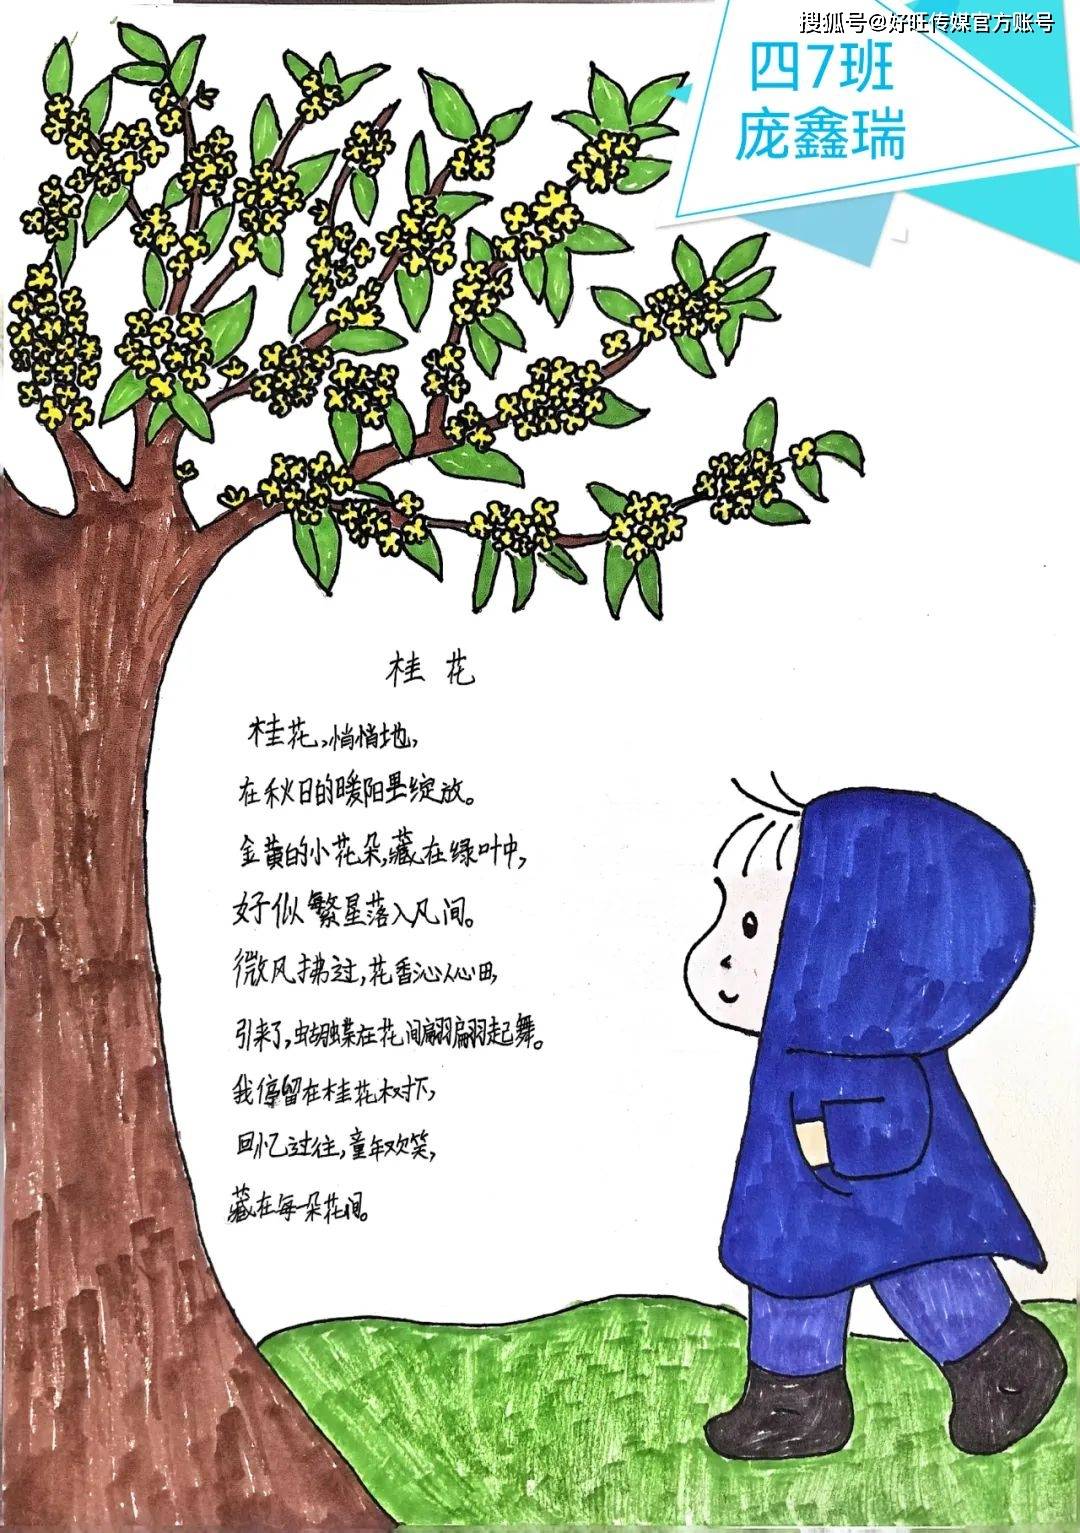 搜狐号@好旺传媒官方账号
四7班
庞鑫瑞
桂花
桂花,悄悄地,
在秋日的暖阳里绽放。
金黄的小花朵,藏在绿叶中,
好似繁星落入凡间。
微风拂过,花香沁人心田,
引来了,蝴蝶在花间翩翩起舞。
我停留在桂花树下,
回忆过往,童年欢笑,
藏在每一朵花间。